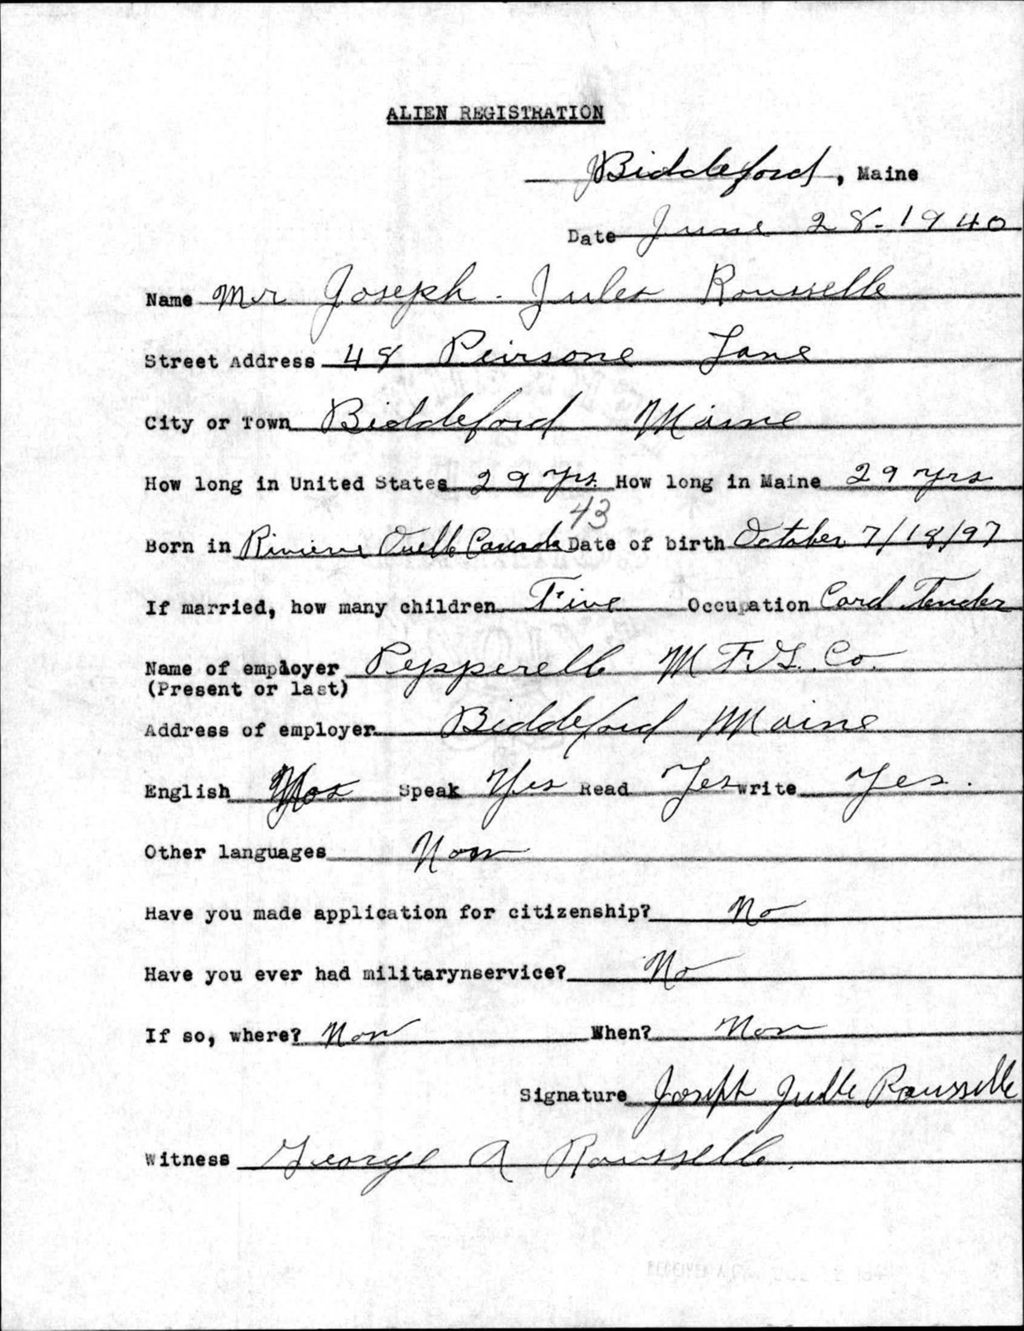 ALIEN REGISTRATION
Biddeford, Maine
Date June 28-1940
Name Mr Joseph - Jules Rousselle
Street Address 48 Peirsone Lane
City or Town Biddeford Maine
How long in United States 29 yrs. How long in Maine 29 yrs
43
Born in Riviere Ouelle Canada Date of birth October 7/18/97
If married, how many children Five Occupation Card Tender
Name of employer Pepperell M F.G. Co.
(Present or last)
Address of employer Biddeford Maine
English Speak Yes Read Yes write Yes.
Other languages Non
Have you made application for citizenship? No
Have you ever had militarynservice? No
If so, where? Non When? Non
Signature Joseph Julle Rousselle
Witness George A Rousselle.